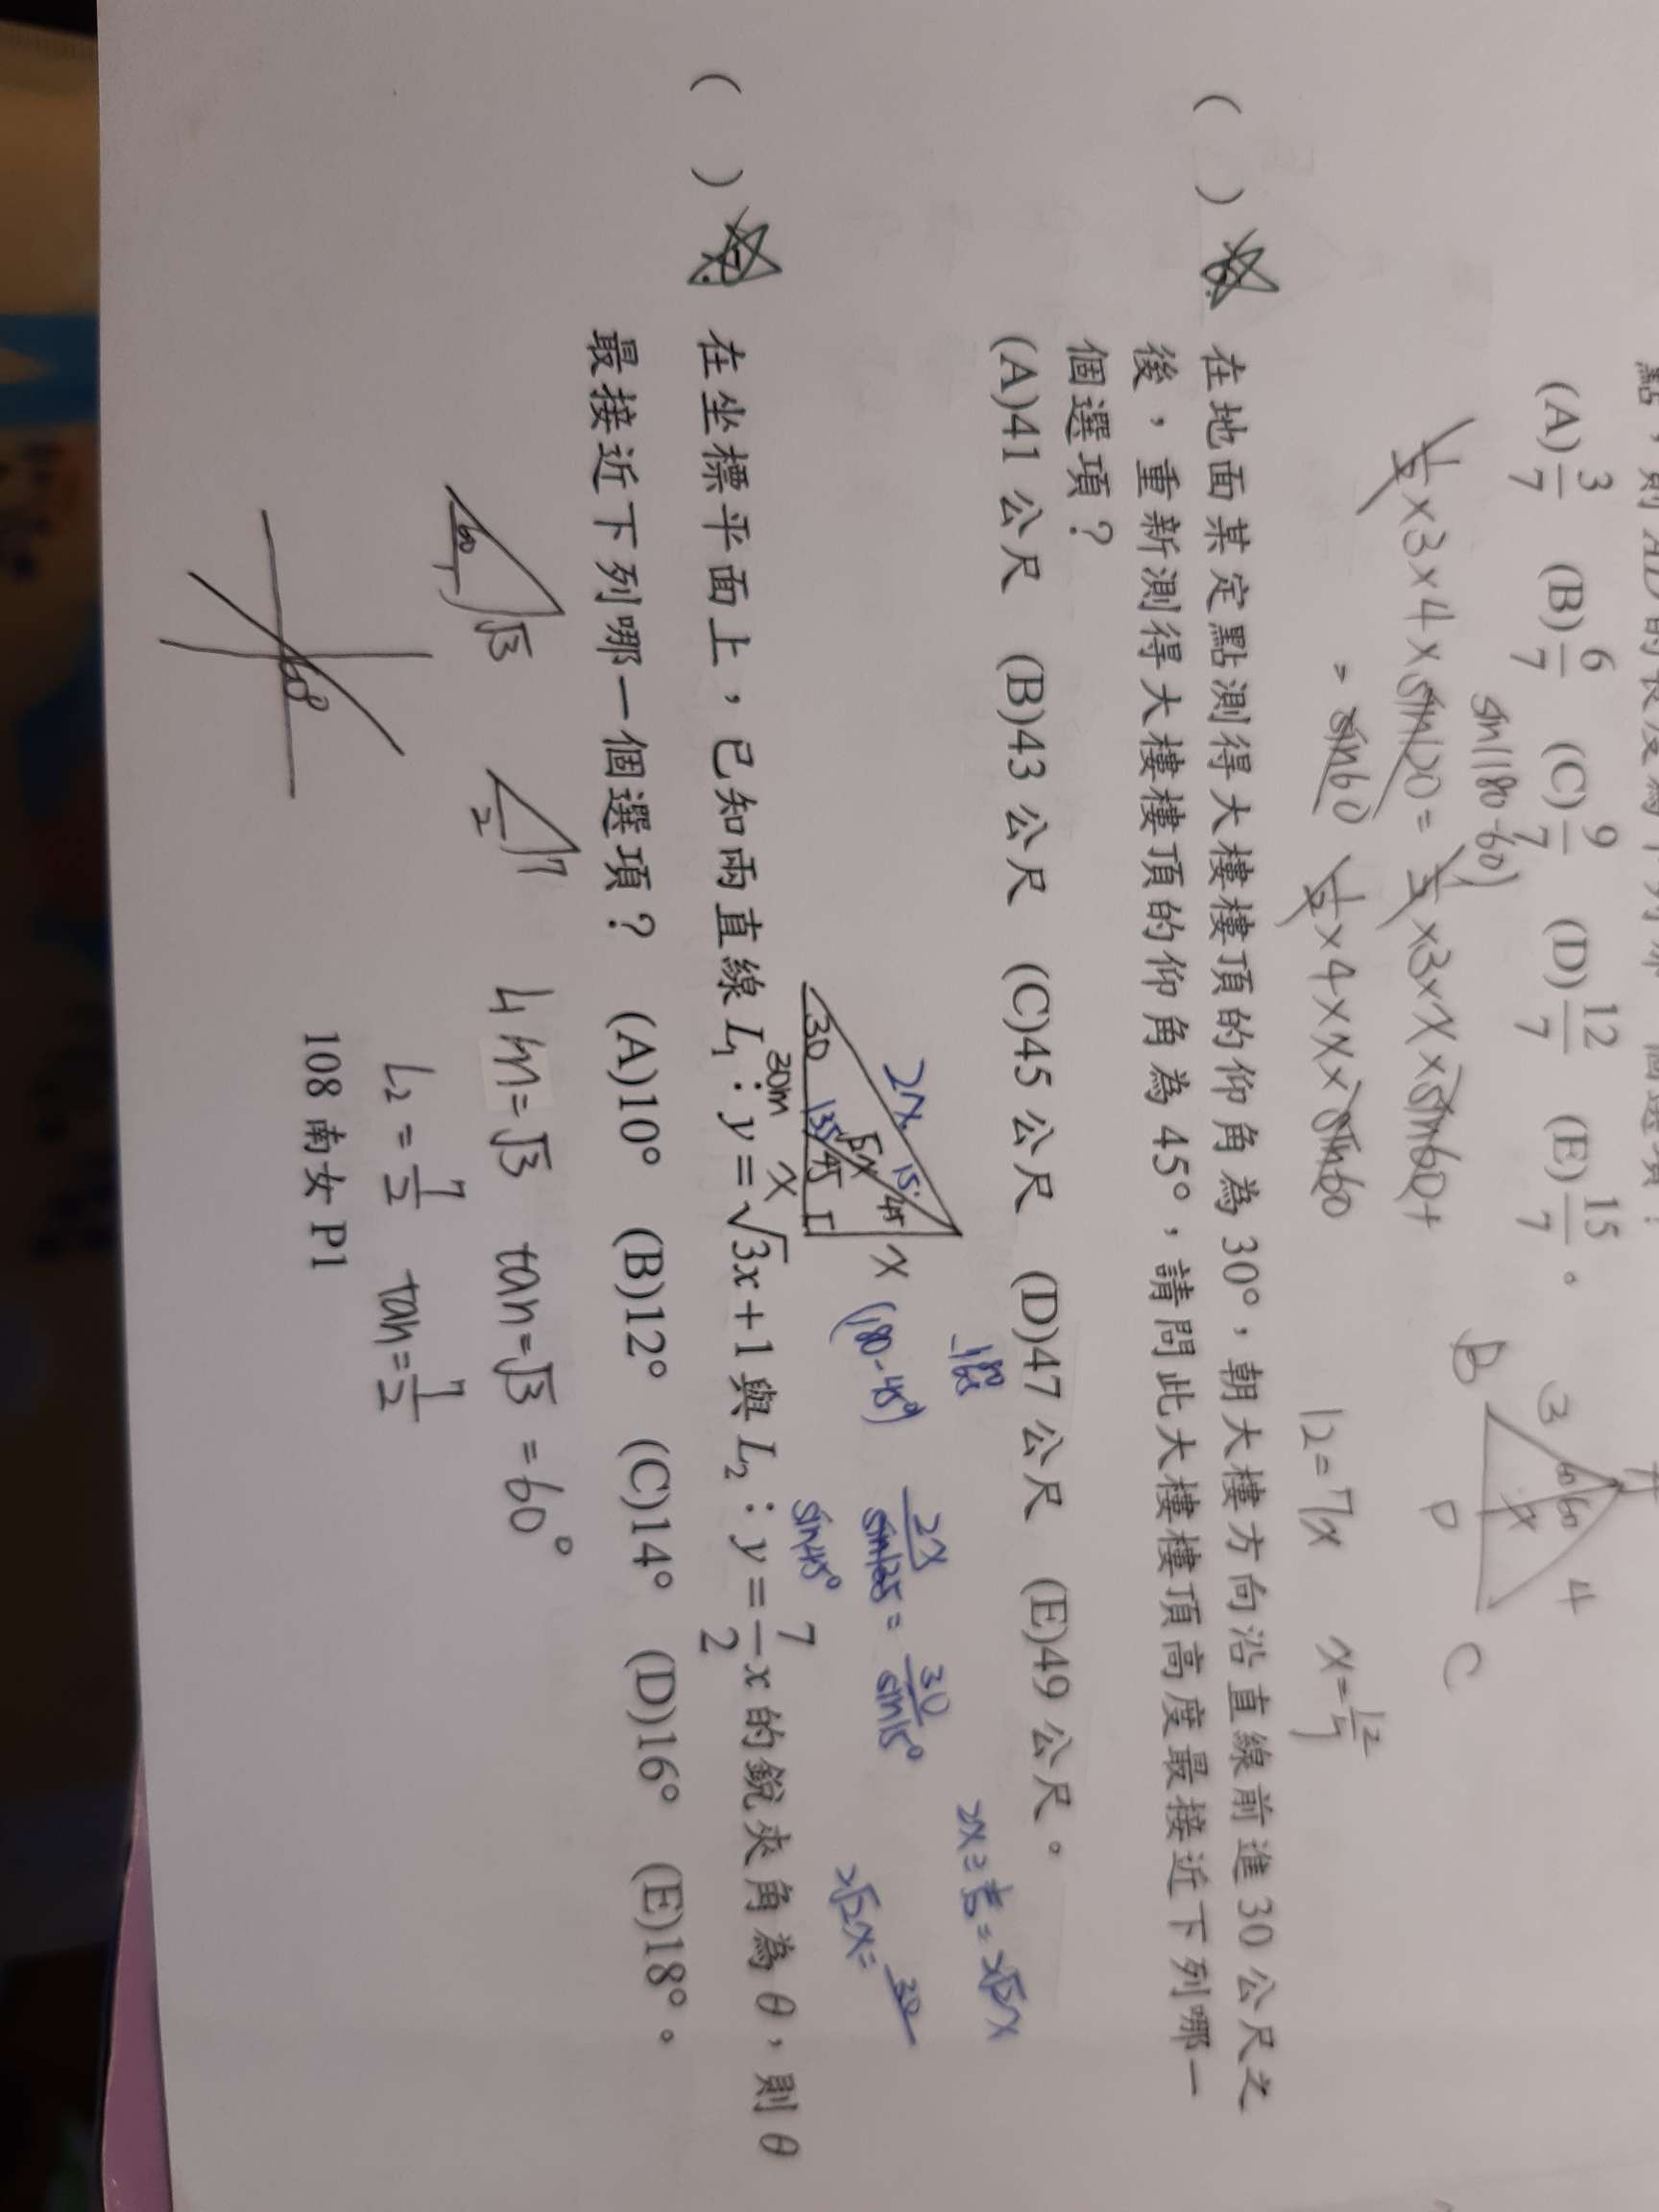 (A)3/7 (B)6/7 (C)9/7 (D)12/7 (E)15/7。
sin(180-60)
1/2×3×4×sin120=1/2×3×x×sin60+
=sin60 1/2×4×x×sin60
12=7x x=12/7
A
3 60 60 4
x
B D C
( ) 6. 在地面某定點測得大樓樓頂的仰角為 30°，朝大樓方向沿直線前進 30 公尺之
後，重新測得大樓樓頂的仰角為 45°，請問此大樓樓頂高度最接近下列哪一
個選項？
(A)41 公尺 (B)43 公尺 (C)45 公尺 (D)47 公尺 (E)49 公尺。
2x 15° 45
30 135 45 √2x x
30m x
(180-45°)
2x/sin135=30/sin15°
sin45°
2√2x=30
( ) 7. 在坐標平面上，已知兩直線 L₁：y=√3x+1 與 L₂：y=7/2x 的銳夾角為 θ，則 θ
最接近下列哪一個選項？ (A)10° (B)12° (C)14° (D)16° (E)18°。
60 1 √3
2 7
L1 m=√3 tan=√3 =60°
L2=7/2 tan=7/2
60°
108 南女 P1